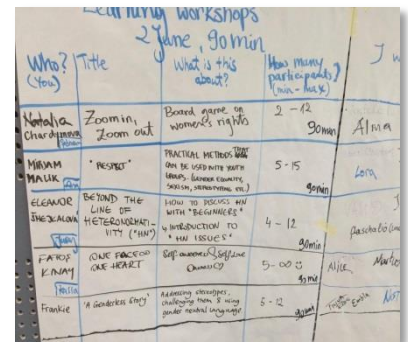 Learning workshops
2 June, 90 min
Who? (You)
Title
What is this about?
How many participants? (min - max)
J w
Natalia
Zoom in, Zoom out
Board game on women's rights
2 - 12
90min
Alma
MIRIAM MALIK
"RESPECT"
PRACTICAL METHODS THAT
CAN BE USED WITH YOUTH
GROUPS (GENDER EQUALITY,
SEXISM, STEREOTYPING ETC.)
5 - 15
90min
Lora
ELEANOR
BEYOND THE
LINE OF
HETERONORMATI-
VITY ("HN")
HOW TO DISCUSS HN
WITH "BEGINNERS"
INTRODUCTION TO
"HN ISSUES"
4 - 12
90min
FATOŞ KINAY
ONE FACE
ONE HEART
Self-awareness
5 - ∞
90 min
Alice,
Frankie
'A Genderless Story'
Addressing stereotypes,
challenging them, & using
gender neutral language
5 - 12
90min